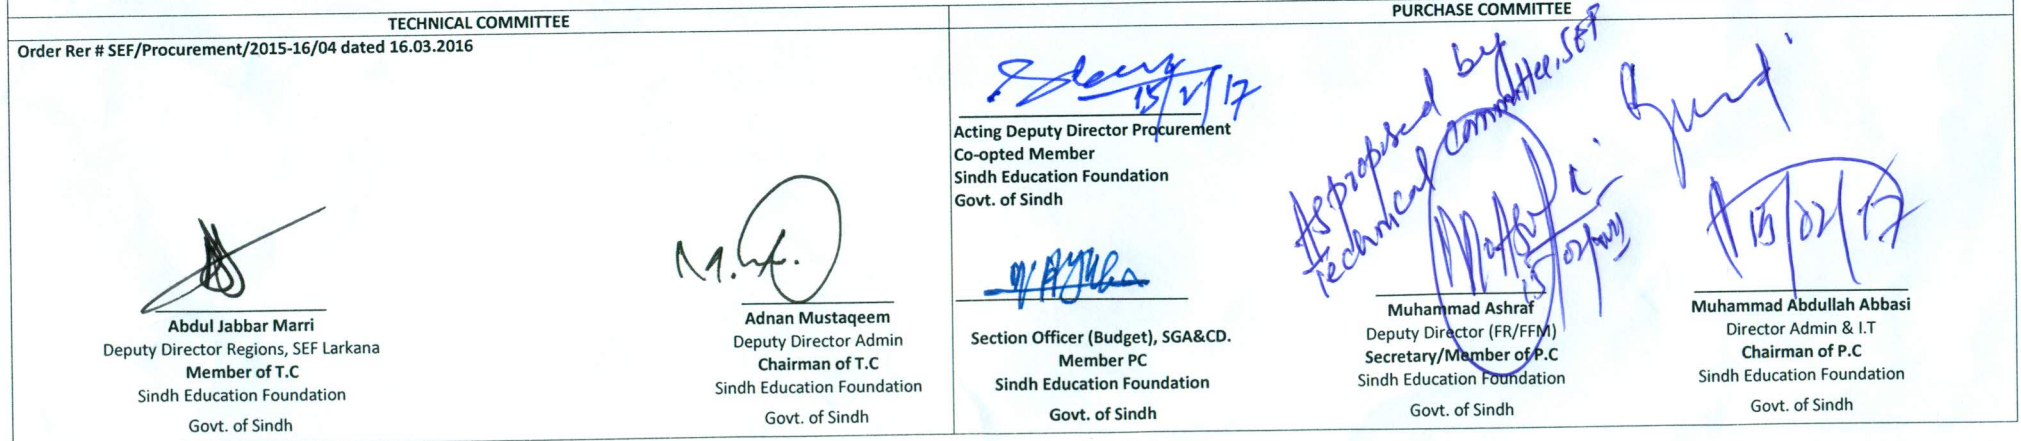 TECHNICAL COMMITTEE
Order Rer # SEF/Procurement/2015-16/04 dated 16.03.2016
Abdul Jabbar Marri
Deputy Director Regions, SEF Larkana
Member of T.C
Sindh Education Foundation
Govt. of Sindh
Adnan Mustaqeem
Deputy Director Admin
Chairman of T.C
Sindh Education Foundation
Govt. of Sindh
PURCHASE COMMITTEE
15/2/17
Acting Deputy Director Procurement
Co-opted Member
Sindh Education Foundation
Govt. of Sindh
Section Officer (Budget), SGA&CD.
Member PC
Sindh Education Foundation
Govt. of Sindh
As proposed by
Technical Committee, SEF
Muhammad Ashraf
Deputy Director (FR/FFM)
Secretary/Member of P.C
Sindh Education Foundation
Govt. of Sindh
15/02/17
Muhammad Abdullah Abbasi
Director Admin & I.T
Chairman of P.C
Sindh Education Foundation
Govt. of Sindh